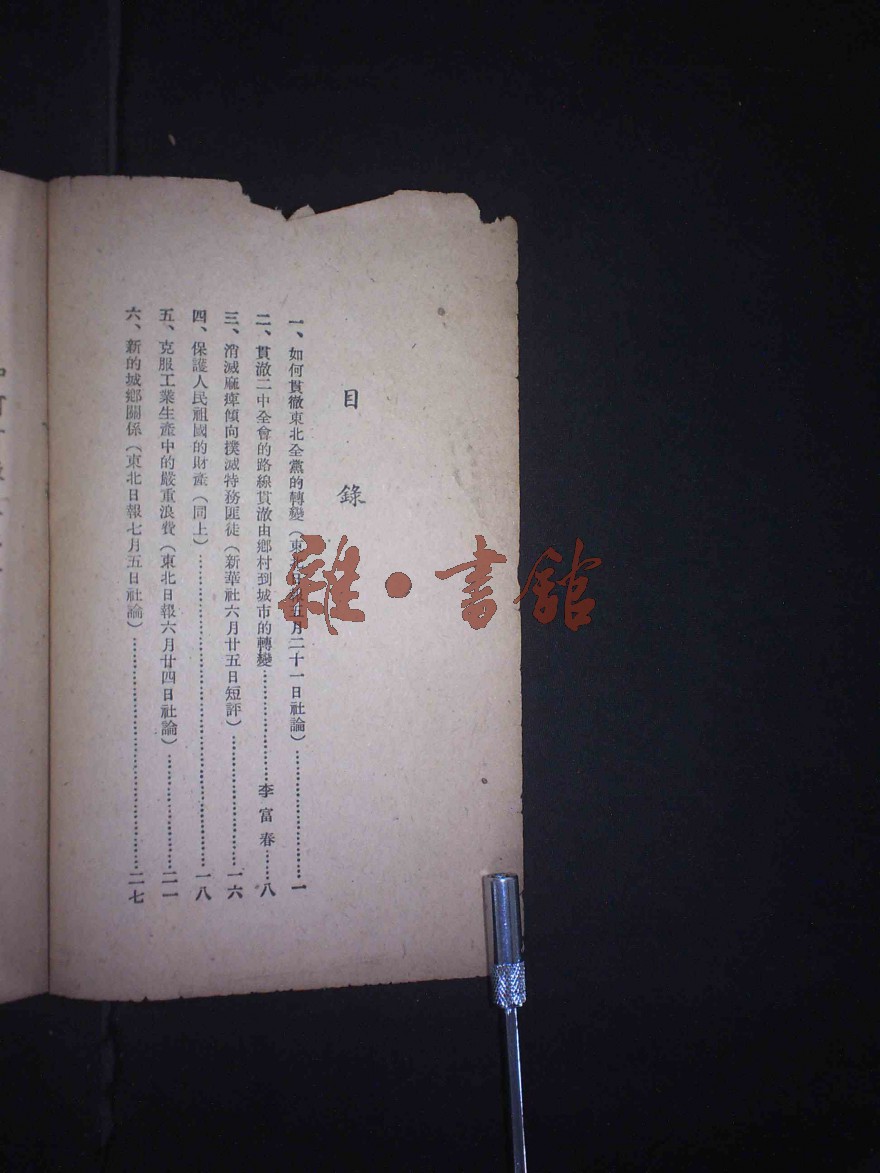 目錄
一、如何貫徹東北全黨的轉變（東北日報五月二十一日社論）……一
二、貫澈二中全會的路線貫澈由鄉村到城市的轉變……李富春……八
三、消滅麻痺傾向撲滅特務匪徒（新華社六月廿五日短評）……一六
四、保護人民祖國的財產（同上）……一八
五、克服工業生產中的嚴重浪費（東北日報六月廿四日社論）……二一
六、新的城鄉關係（東北日報七月五日社論）……二七
雜·書館